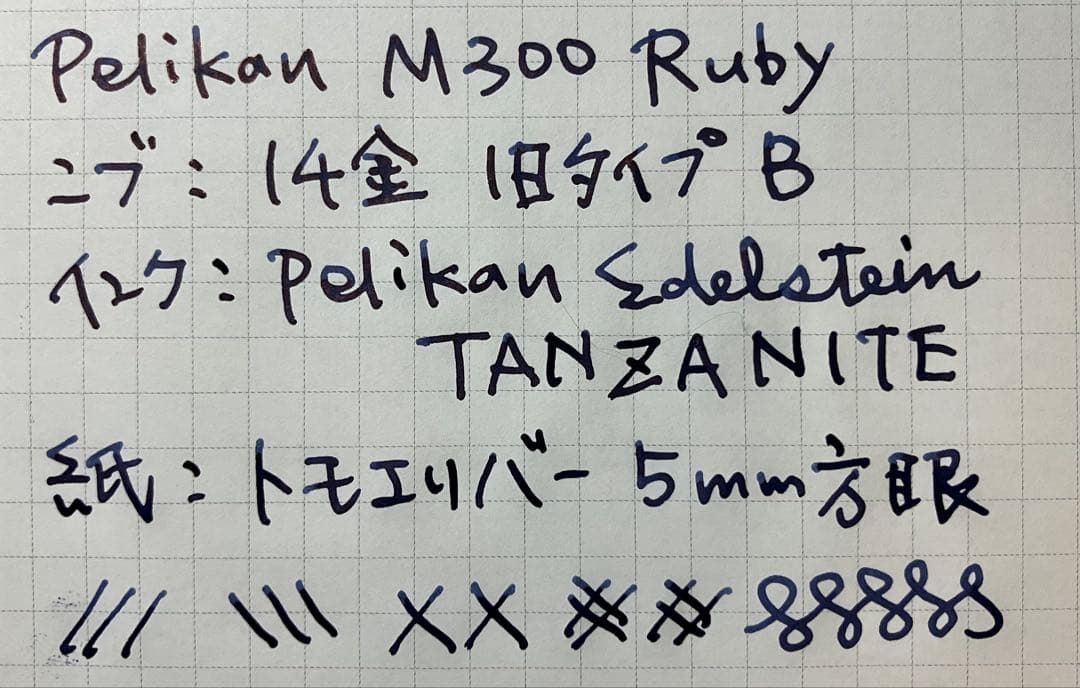 Pelikan M300 Ruby
ニブ: 14金 旧タイプ B
インク: Pelikan Edelstein
TANZANITE
紙: トモエリバー 5mm方眼